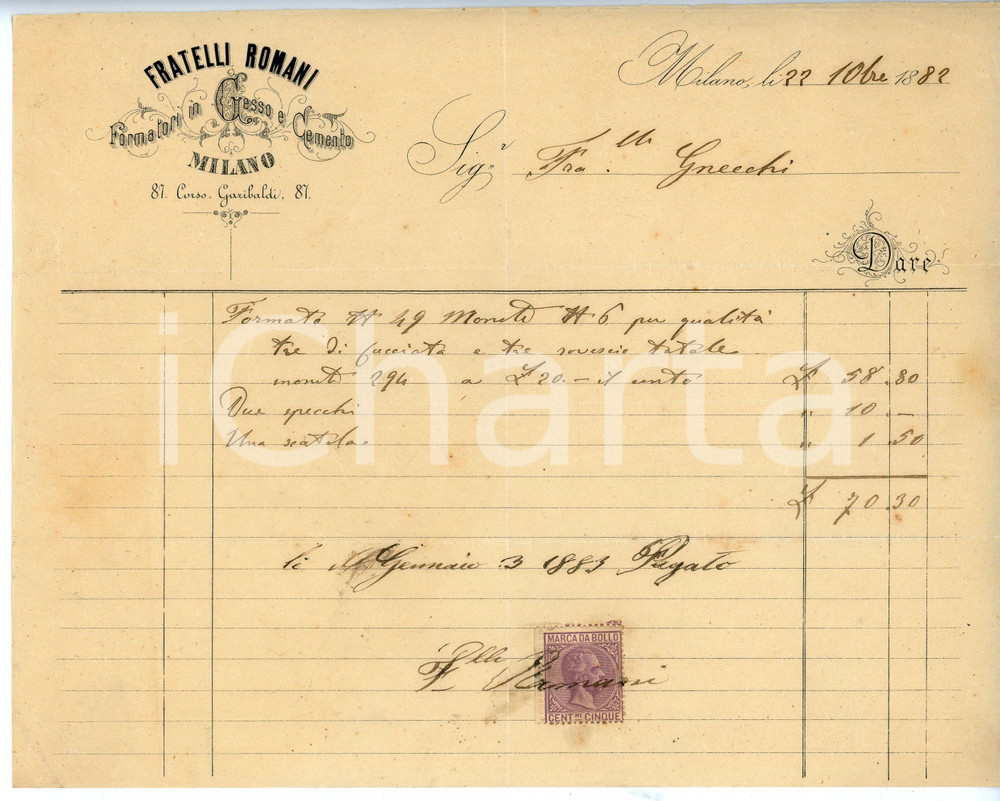 FRATELLI ROMANI
Formatori in Gesso e Cemento
MILANO
87. Corso. Garibaldi, 87.
Milano, li 22 10bre 1882
Sigri Fralli Gnecchi
Dare
Formato N 49 Monete N 6 per qualità
tre di facciata e tre rovescio totale
monete 294 a £ 20.— il cento £ 58.80
Due specchi " 10.—
Una scatola " 1.50
£ 70.30
li Gennaio 3 1883 Pagato
Flli Romani
MARCA DA BOLLO
CENT.MI CINQUE
iCharta